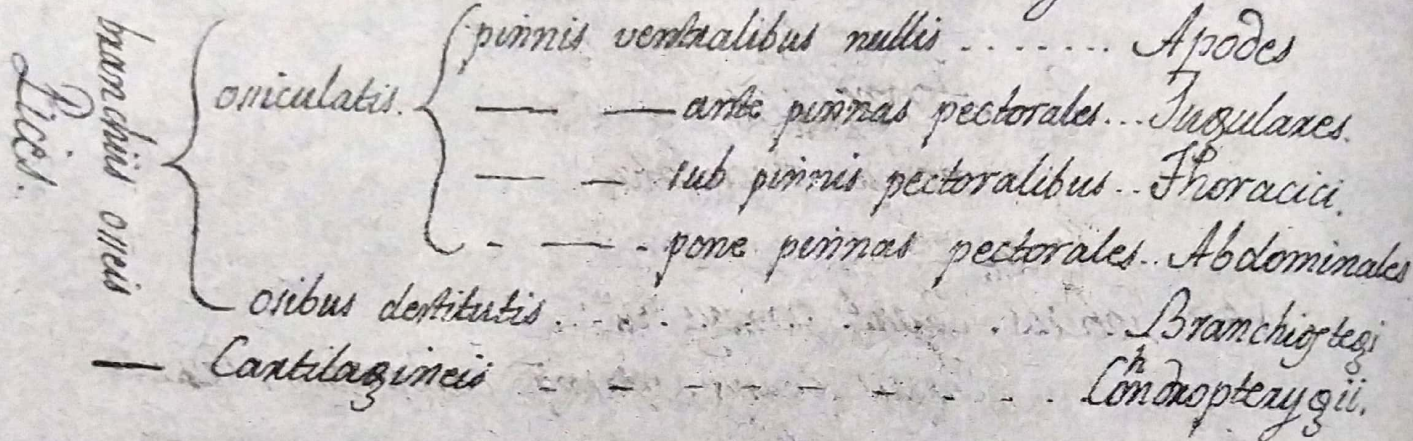 Pices.
branchiis osseis
ossiculatis.
pinnis ventralibus nullis ........ Apodes
— — ante pinnas pectorales... Jugulares.
— — sub pinnis pectoralibus.. Thoracici.
- — - pone pinnas pectorales.. Abdominales
ossibus destitutis. Branchiostegi
— Cartilagineis - - - - - - - . . . Chondropterygii.